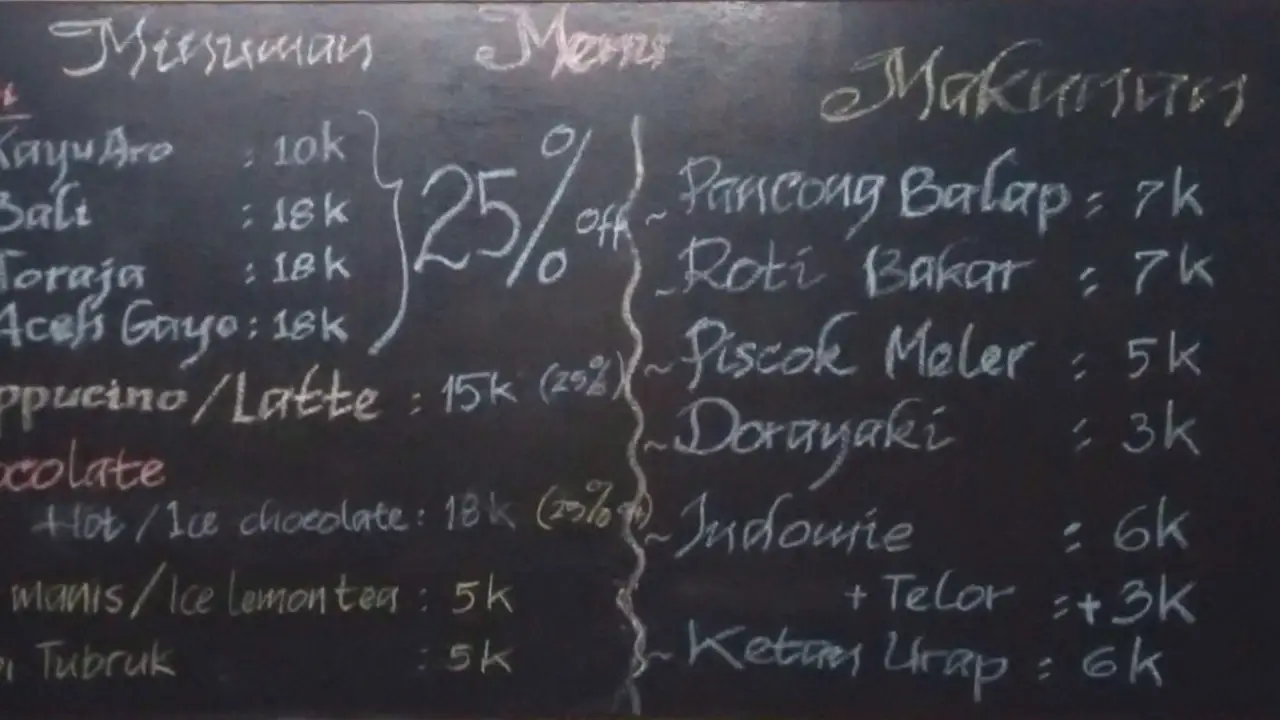 Menu
Minuman
Kayu Aro : 10k
Bali : 18k
Toraja : 18k
Aceh Gayo : 18k
25% off
ppucino / Latte : 15k (25%)
ocolate
Hot / Ice chocolate : 18k (25%
manis / Ice lemon tea : 5k
Tubruk : 5k
Makanan
~ Pancong Balap : 7k
~ Roti Bakar : 7k
~ Piscok Meler : 5k
~ Dorayaki : 3k
~ Indomie : 6k
+ Telor : +3k
~ Ketan Urap : 6k